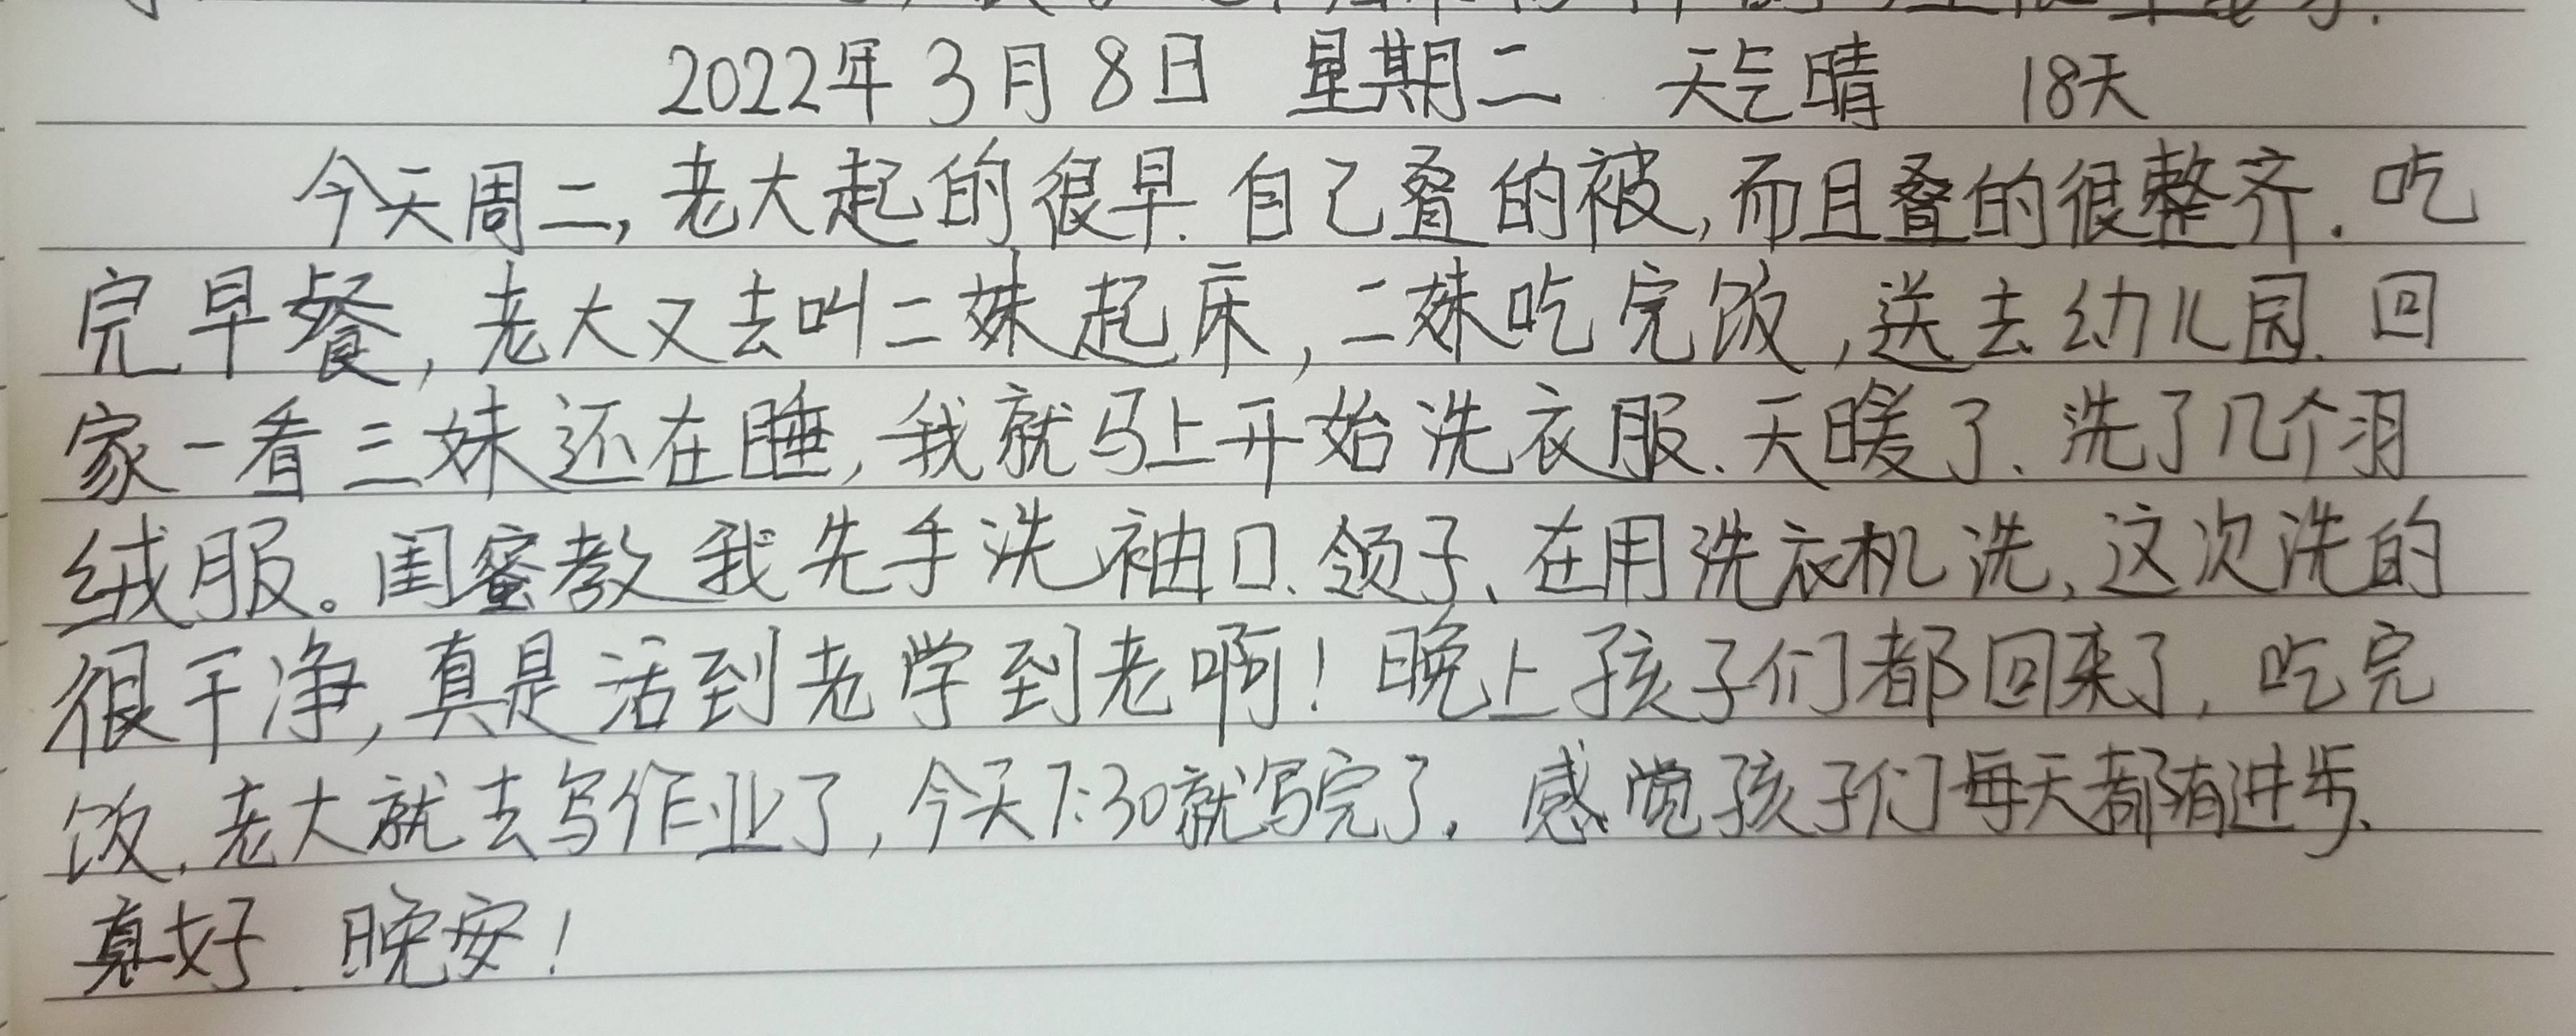 2022年3月8日 星期二 天气晴 18天
今天周二,老大起的很早.自己叠的被,而且叠的很整齐.吃
完早餐,老大又去叫二妹起床,二妹吃完饭,送去幼儿园.回
家一看三妹还在睡,我就马上开始洗衣服.天暖了、洗了几个羽
绒服。闺蜜教我先手洗袖口、领子、在用洗衣机洗,这次洗的
很干净,真是活到老学到老啊!晚上孩子们都回来了,吃完
饭,老大就去写作业了,今天7:30就写完了.感觉孩子们每天都有进步、
真好.晚安!